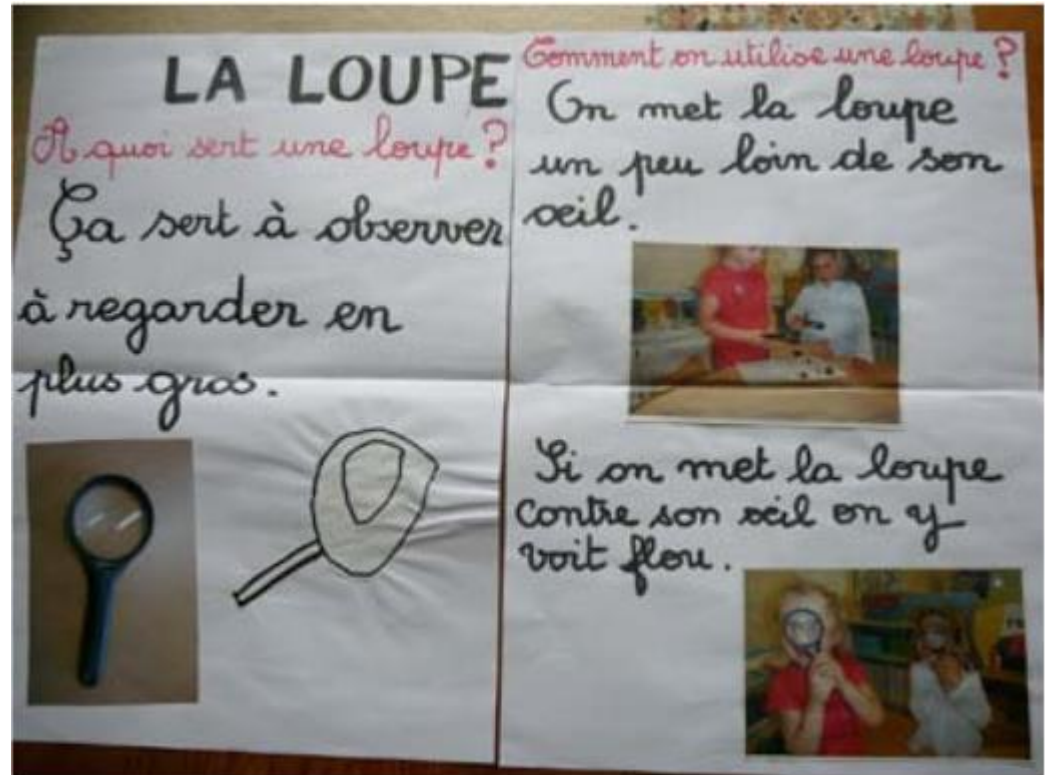 LA LOUPE
A quoi sert une loupe ?
Ça sert à observer
à regarder en
plus gros.
Comment on utilise une loupe ?
On met la loupe
un peu loin de son
oeil.
Si on met la loupe
contre son oeil on y
voit flou.